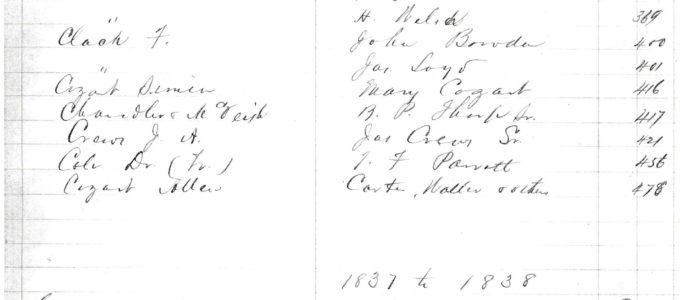 H. Welch 369
Clack F. John Bowden 400
Jas Loyd 401
Cozart Simeon Mary Cozart 416
Chandler & McVeigh B. P. Thorp Sr. 417
Crews J. A. Jas Crews Sr. 421
Cole Dr (Tr.) T. F Parrott 456
Cozart Allen Carter, Walter & others 478
1837 to 1838